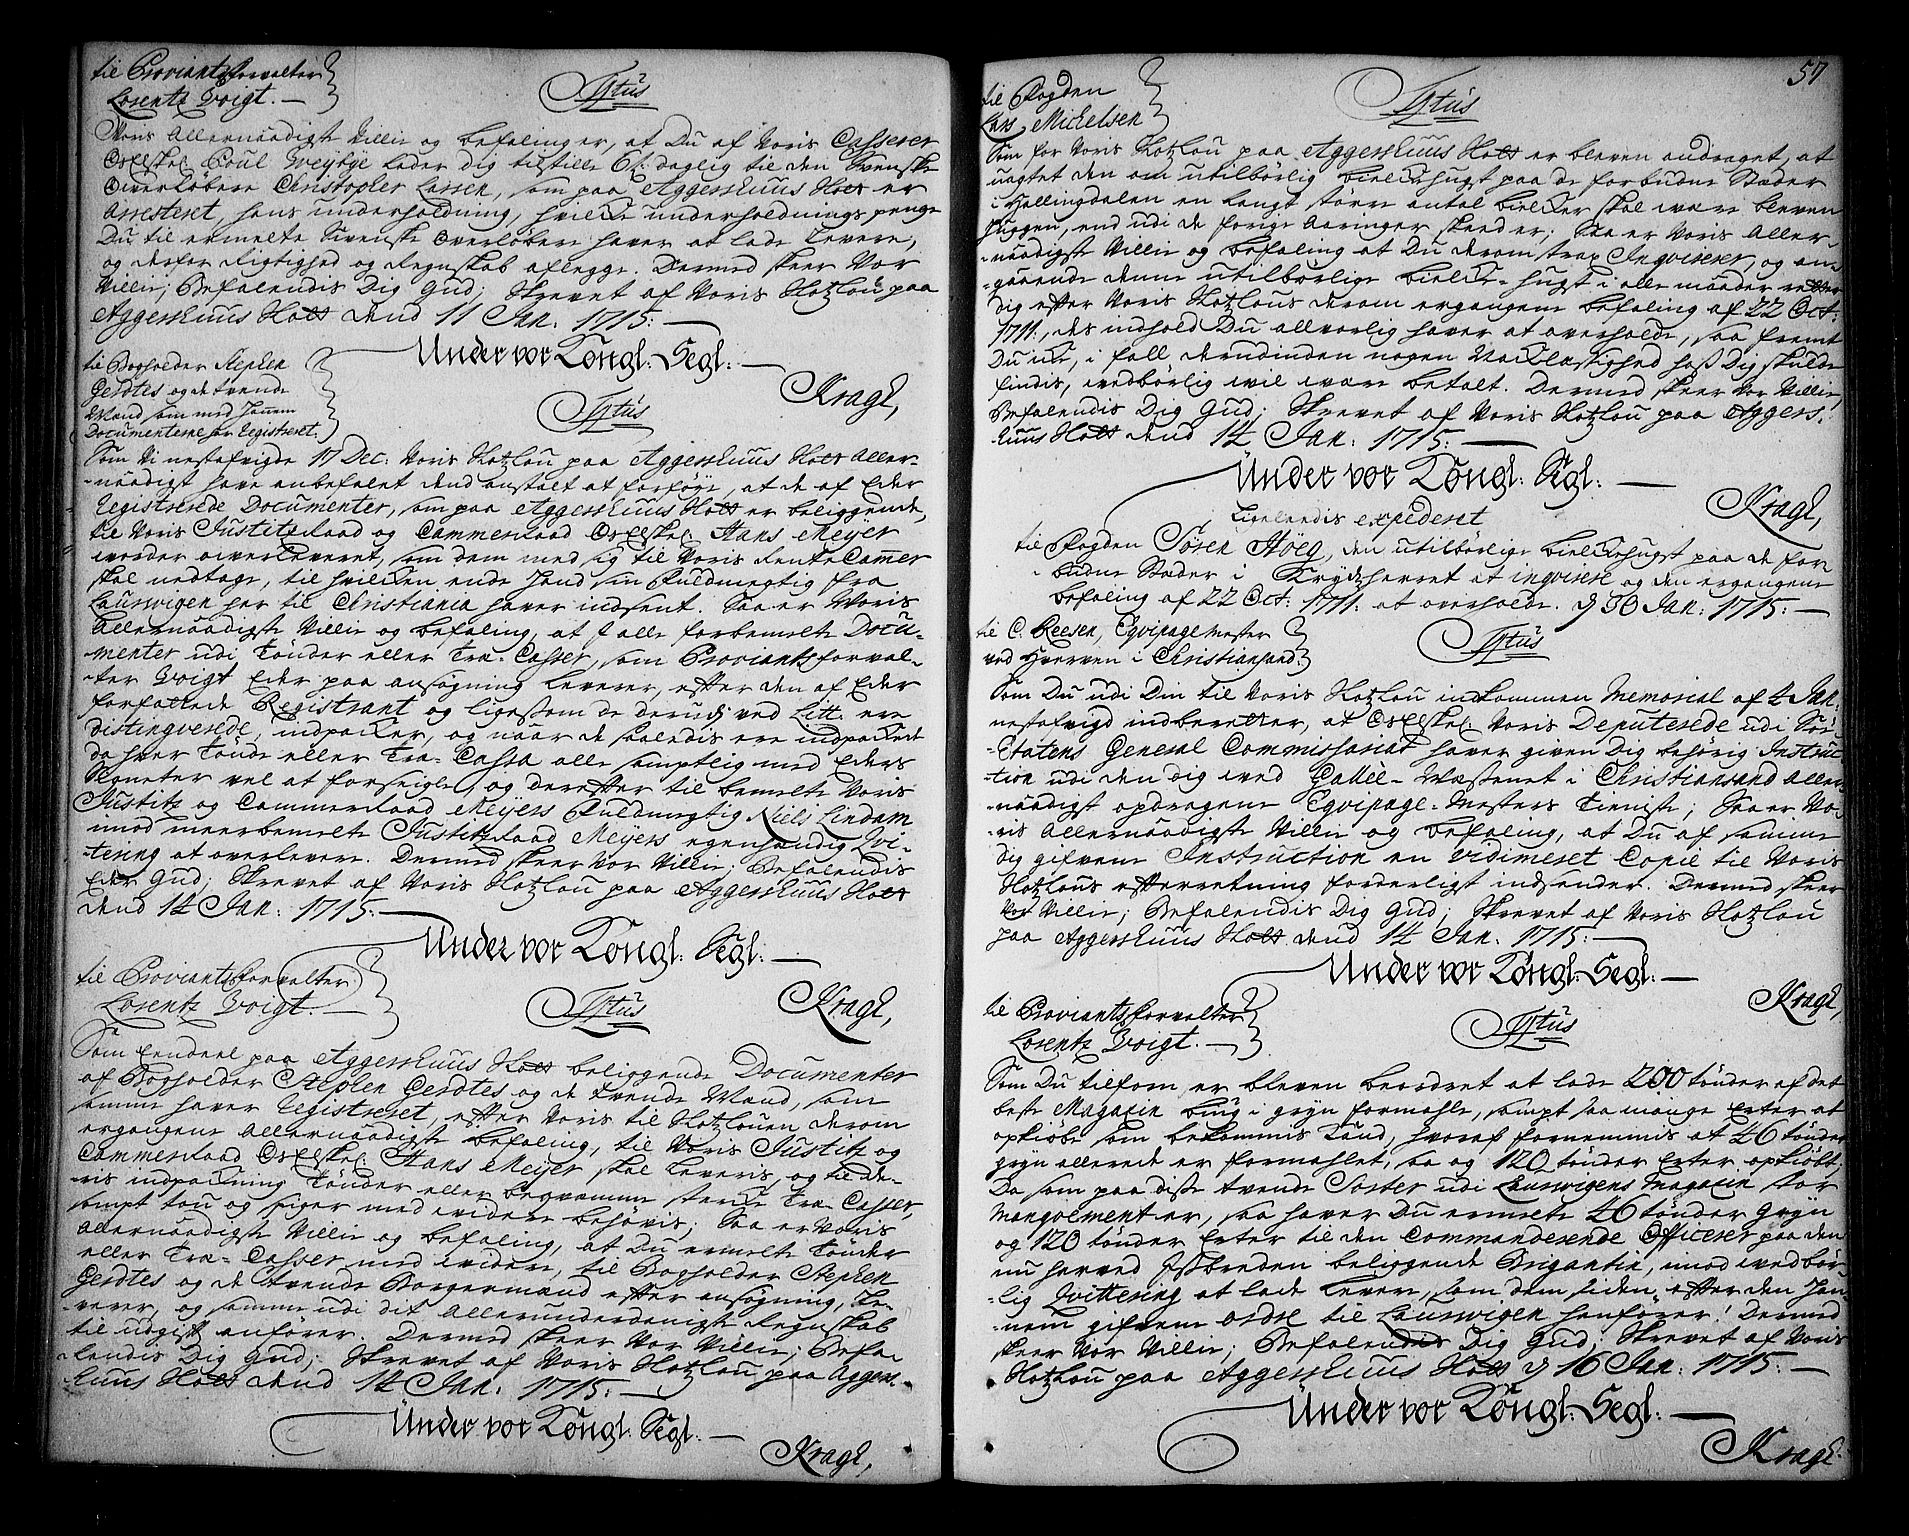 til Proviantsforvalter
Lorentz Voigt. —
Tjtus
Voris Allernaadigste Villie og befaling er, at Du af Voris Casserer
Os Elskel. Poul Weybye lader dig tilstille 6 s. daglig til den Svenske
Overløbere Christopher Lassen, som paa Aggershuus Slott er
Arresteret, hans underholdning, hvilke underholdnings penge
Du til ermelte Svenske Overløbere haver at lade levere,
og derfor Rigtighed og Regnskab aflegge. Dermed skeer Vor
Villie; Befalendis Dig Gud; Skrevet af Voris Slotzlou paa
Aggershuus Slott dend 11 Jan. 1715. —
Under vor Kongl: Segl: —
Kragh,
til Bogholder Stephen
Gerdtes og de tvende
Mænd som med hannem
Documenterne har Registreret.
Tjtus
Som Vi nestafvigte 17 Dec: Voris Slotzlou paa Aggershuus Slott Aller-
-naadigst have anbefalet dend anstalt at forføye, at de af Eder
Registrerede Documenter, som paa Aggershuus Slott er beliggende,
til Voris Justitzraad og Cammerraad Os Elskel. Hans Meyer
vorder overleveret, som dem med sig til Voris Rente Cammer
skal nedtage, til hvilken ende hand sin Fuldmegtig fra
Laurwigen her til Christiania haver indsent. Saa er Voris
Allernaadigste Villie og befaling, at I alle forbemelte Docu-
-menter udi Tønder eller Træ-Casser, som Proviantzforval-
-ter Voigt Eder paa ansøgning leverer, efter den af Eder
forfattede Registrant og ligesom de derudj ved Litt. ere
distingverede, indpacker, og naar de saaledis ere indpackede
da hver Tønde eller Træ-Cassa alle samptlig med Eders
Signeter vel at forseigle, og derefter til bemelte Voris
Justitz og Cammerraad Meyers Fuldmegtig Niels Lindam
imod meerbemelte Justitzraad Meyers egenhændig Qvi-
-tering at overlevere. Dermed skeer Vor Villie; Befalendis
Eder Gud; Skrevet af Voris Slotzlou paa Aggershuus Slott
dend 14 Jan. 1715. —
Under vor Kongl: Segl: —
Kragh,
til Proviantsforvalter
Lorentz Voigt. —
Tjtus
Som Eendeel paa Aggershuus Slott beliggende Documenter
af Bogholder Stephen Gerdtes og de tvende Mænd, som
samme haver Registreret, efter Voris til Slotzlouen derom
ergangene Allernaadigste befaling, til Voris Justitz og
Cammerraad Os Elskel. Hans Meyer skal leveris, og til de-
-ris indpackning Tønder eller beqvemme sterke Træ Casser,
sampt tou og Siger med videre behøvis; Saa er Voris
Allernaadigste Villie og befaling, at Du ermelte Tønder
eller Træ-Casser med videre, til Bogholder Stephen
Gerdtes og de tvende Borgermænd efter ansøgning, le-
-verer, og samme udi dit Allerunderdanigste Regnskab
til udgift anfører. Dermed skeer Vor Villie; Befa-
-lendis Dig Gud; Skrevet af Voris Slotzlou paa Aggers-
-huus Slott dend 14 Jan. 1715. —
Under vor Kongl: Segl: —
Kragh,
57
til Fogden
Lars Michelsen
Tjtus
Som for Voris Slotzlou paa Aggershuus Slott er bleven andraget, at
uagtet den om utilbørlig bielkehugst paa de forbudne Stæder
i Hallingdalen en langt større antal bielker skal være bleven
huggen, end udi de forige Aaringer skeed er; Saa er Voris Aller-
-naadigste Villie og befaling at Du derom strax Inqvirerer, og an-
-gaaende denne utilbørlige bielke-hugst i alle maader retter
dig efter Voris Slotzlous derom ergangene befaling af 22 Oct:
1711, des indhold Du allvorlig haver at overholde, saa fremt
Du icke, i fall derudinden nogen Vanlæstighed hos Dig skulde
findis, vedbørlig vil være betalt. Dermed skeer Vor Villie;
Befalendis Dig Gud; Skrevet af Voris Slotzlou paa Aggers-
huus Slott dend 14 Jan: 1715. —
Under vor Kongl: Segl: —
Kragh,
Ligeledis expederet
til Fogden Søren Høeg, den utilbørlige bielkehugst paa de for-
budne Stæder i Krydzherret at inqvirere og den ergangene
befaling af 22 Oct: 1711. at overholde. d 30 Jan: 1715. —
til C. Reesen, Eqvipagemester
ved Hverven i Christiansand.
Tjtus
Som Du udi Din til Voris Slotzlou indkommen Memorial af 4 Jan:
nestafvigt indberetter, at Os Elskel: Voris Deputerede udi Søe
-Etatens General Commissariat haver given Dig behørig Instruc
-tion udi den dig ved Galleé-Væsenet i Christiansand Aller-
-naadigst opdragene Eqvipage-Mesters Tieniste; Saa er Vo-
-ris Allernaadigste Villie og befaling, at Du af samme
dig gifvene Instruction en vidimeret Copie til Voris
Slotzlous efterretning forderligt indsender. Dermed skeer
Vor Villie; Befalendis Dig Gud; Skrevet af Voris Slotzlou
paa Aggershuus Slott dend 14 Jan. 1715. —
Under vor Kongl: Segl: —
Kragh,
til Proviantsforvalter
Lorentz Voigt. —
Tjtus
Som Du tilforn er bleven beordret at lade 200 tønder af det
beste Magazin biug i gryn formahle, sampt saa mange Erter at
opkiøbe som bekommis kund, hvoraf fornemmis at 46 tønder
gryn allerede er formahlet, saa og 120 tønder Erter opkiøbt;
Da som paa disse tvende Sorter udi Laurwigens Magazin stor
Mangvement er, saa haver Du ermelte 46 tønder gryn
og 120 tønder Erter til den Commanderende Officerer paa den
nu herved Festbroden beliggende Brigantin, imod vedbør-
-lig Qvittering at lade levere, som dem siden, efter den han-
-nem gifvene ordre til Laurwigen henfører! Dermed
skeer Vor Villie; Befalendis Dig Gud; Skrevet af Voris
Slotzlou paa Aggershuus Slott d 16 Jan: 1715. —
Under vor Kongl: Segl: —
Kragh.